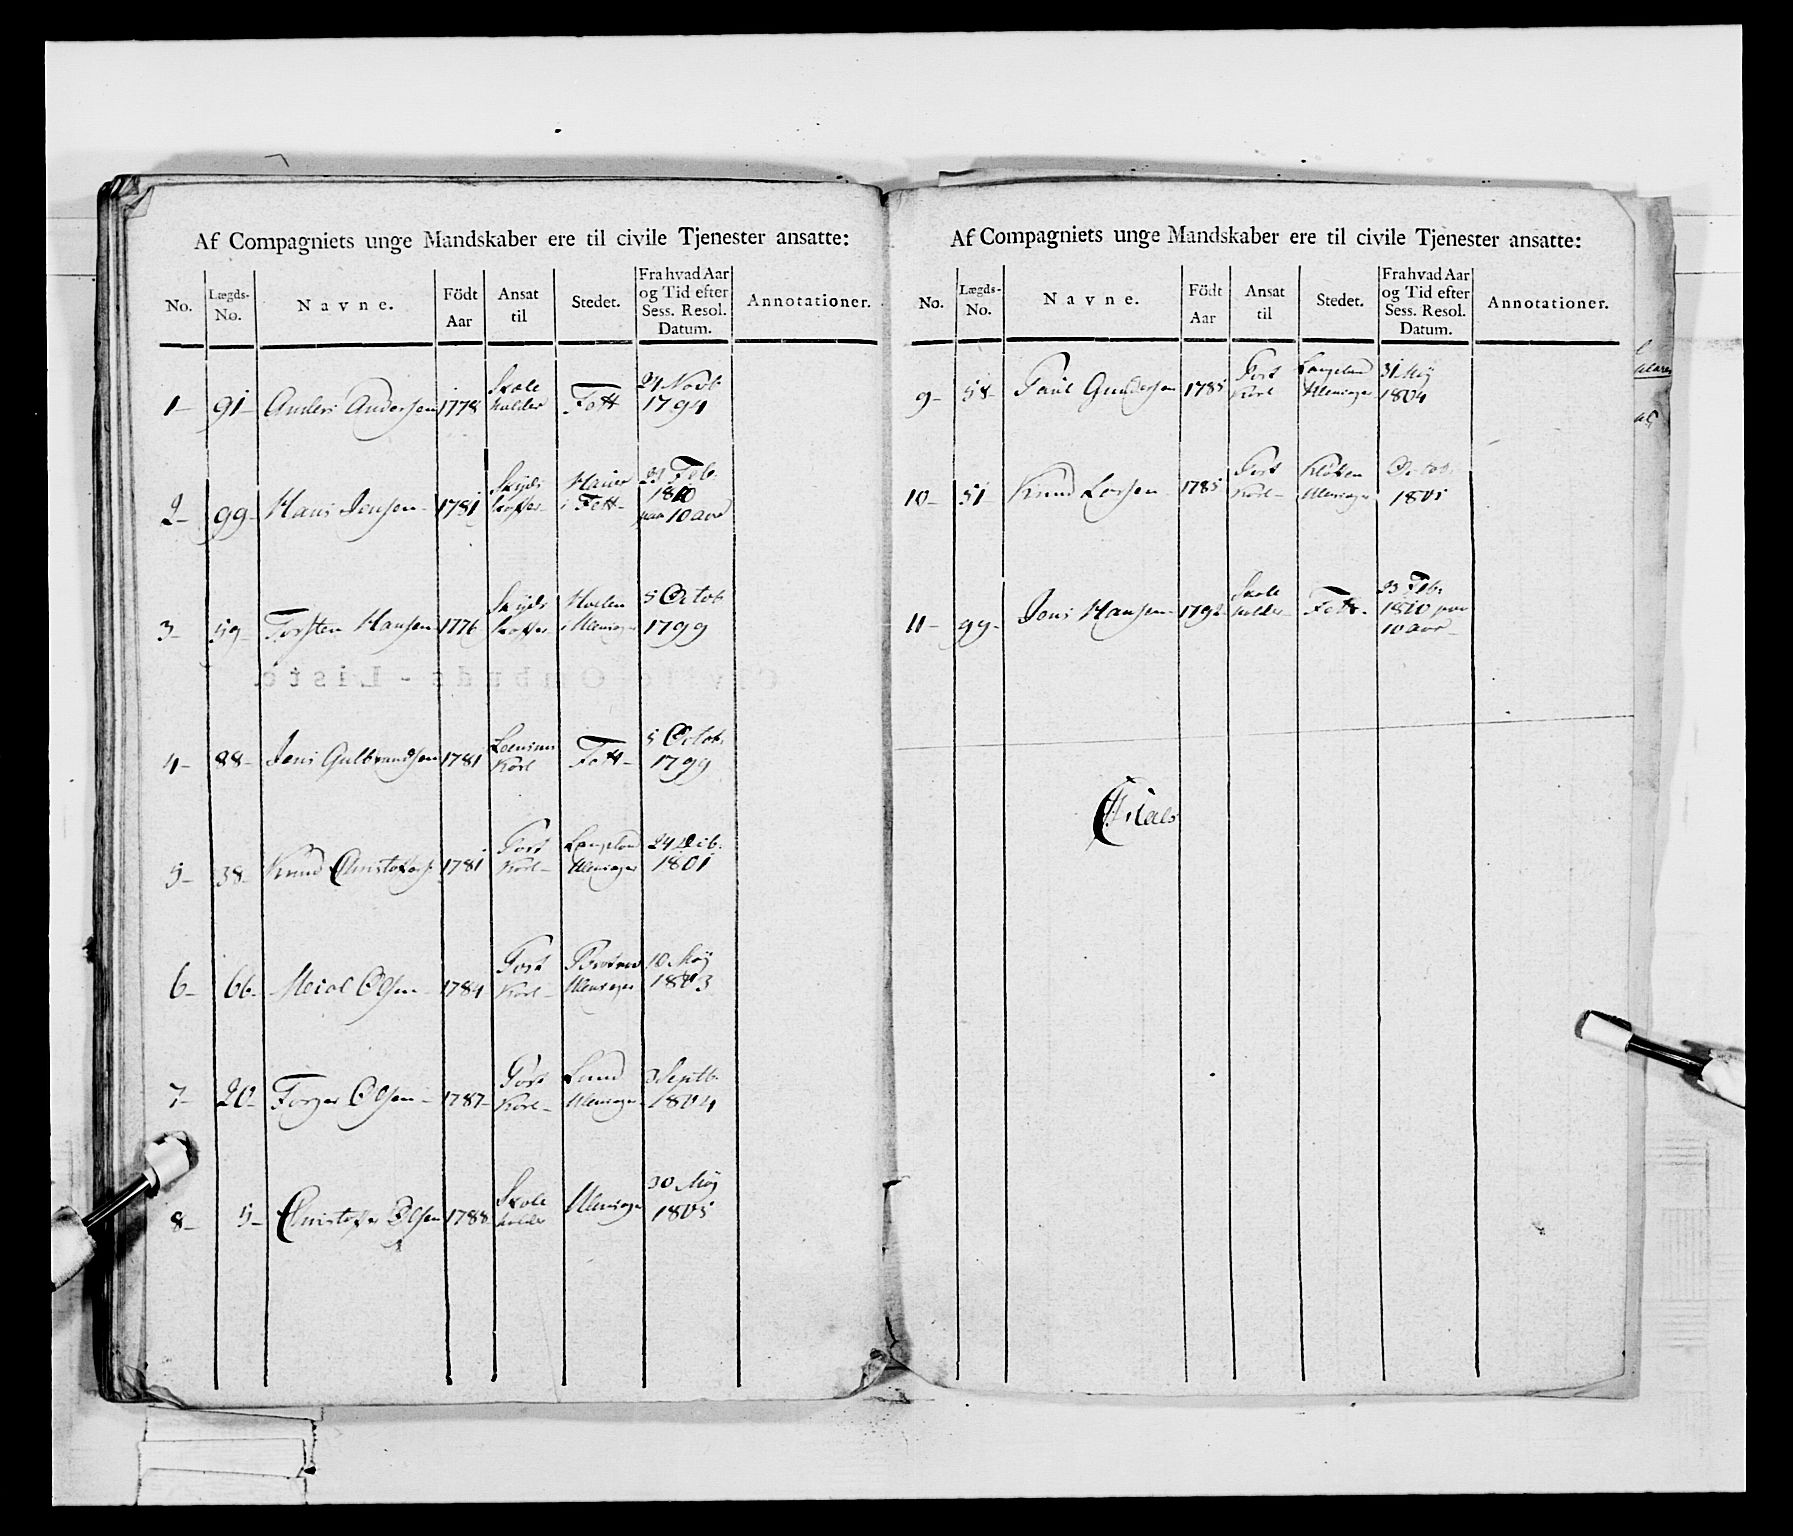 Af Compagniets unge Mandskaber ere til civile Tjenester ansatte:
No. Lægds-No. Navne. Födt Aar Ansat til Stedet. Fra hvad Aar og Tid efter Sess. Resol. Datum. Annotationer.
1- 91- Anders Andersen 1778 Skoleholder Fett 1794
2- 99- Hans Jensen- 1781 Skyds i Fett- Feb. 1810 paa 10 aar
3- 59- Torsten Hansen 1776 Skyds 5 Octob 1799
4- 88- Jens Gulbrandsen 1781 Karl Fett- 5 Octob. 1799
5- 38- Knud Christophers. 1781 Post Karl- Ullensager 1801
6- 66- Olsen- 1784 Post Karl- Ullensager 10 May 1803
7- 20- Olsen- 1787- Post Karl- Lund Ullensager 3 Septb. 1804
8- 5- Christopher Olsen 1788 Skoleholder Ullensager 30 May 1805
Af Compagniets unge Mandskaber ere til civile Tjenester ansatte:
No. Lægds-No. Navne. Födt Aar Ansat til Stedet. Fra hvad Aar og Tid efter Sess. Resol. Datum. Annotationer.
9- 58- Paul Gundersen 1785 Post Karl Ullensager 31 May 1804
10- 51 Knud Larsen- 1785 Post Karl- Kløften Ullensager Octob. 1805
11- 99- Jens Hansen- 1792- Skoleholder- Fett- 23 Feb. 1810 paa 10 aar-